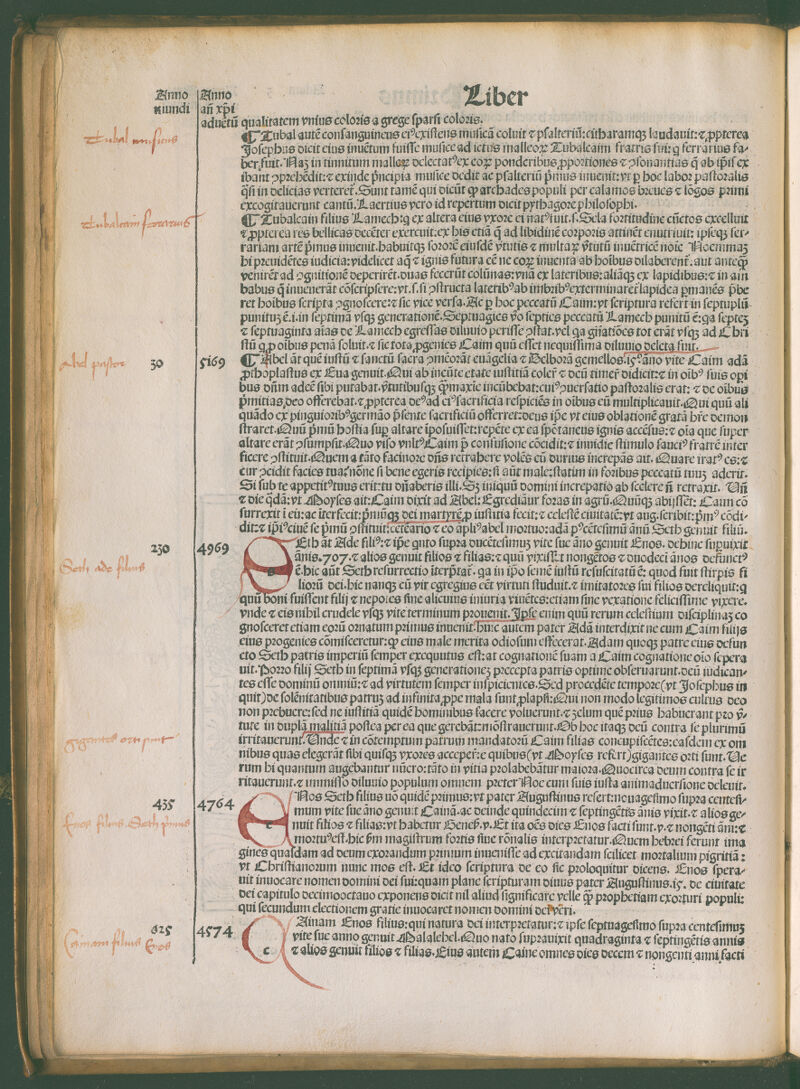 Liber
Anno mundi
Anno añ xp̄i
aduētū qualitatem vnius coloris a grege sparsi coloris.
Tubal musicus
¶ Tubal autē consanguineus eiꝰ existens musicā coluit ⁊ psalteriū: citharamqꝫ laudauit: ⁊ ꝓpterea
Josephus dicit eius inuētum fuisse musice ad ictus malleoꝝ Tubalcaim fratris sui: q ferrarius fa-
ber fuit. Naꝫ in tinnitum malleoꝝ delectatꝰ ex eoꝝ ponderibus ꝓportiones ⁊ ꝯsonantias q̄ ab ip̄is ex
ibant ꝯprehēdit: ⁊ exinde p̄ncipia musice dedit ac psalteriū p̄mus inuenit: vt p hoc labor pastoralis
q̄si in delicias verteret. Sunt tamē qui dicūt ꝙ archades populi per calamos breues ⁊ lōgos primi
excogitauerunt cantū. Laertius vero id repertum dicit pythagore philosophi.
Tubalcain ferrarius
¶ Tubalcain filius Lamech: q ex altera eius vxore ei natꝰ fuit .s. Sela fortitudine cūctos excelluit
⁊ ꝓpterea res bellicas decēter exercuit: ex his etiā q̄ ad libidinē corporis attinēt enutriuit: ipseqꝫ fer-
rariam artē p̄mus inuenit. habuitqꝫ sororē eiusdē v̄tutis ⁊ multaꝝ v̄tutū inuētricē noīe Noemmaꝫ
hi preuidētes iudicia: videlicet aq̄ ⁊ ignis futura cē ne eoꝝ inuenta ab hoībus dilaberent. aut anteqꝫ
venirēt ad ꝯgnitionē deperirēt. duas fecerūt colūnas: vnā ex lateribus: aliāqꝫ ex lapidibus: ⁊ in am
babus q̄ inuenerāt cōscripsere: vt .s. si ꝯstructa lateribꝰ ab imbribꝰ exterminaret lapidea p̄manēs p̄be
ret hoibus scripta ꝯgnoscere: ⁊ sic vice versa. Ac p hoc peccatū Caim: vt scriptura refert in septuplū
punituꝫ ē .i. in septimā vsqꝫ generationē. Septuagies v̄o septies peccatū Lamech punitū ē: qa septeꝫ
⁊ septuaginta aīas de Lamech egressas diluuio perisse ꝯstat. vel qa gn̄atiōes tot erāt vsqꝫ ad Chri
stū q ꝓ oibus penā soluit. ⁊ sic tota ꝓgenies Caim quū esset nequissima diluuio deleta fuit.
Abel pastor
30
5169
¶ Abel āt quē iustū ⁊ sanctū sacra ꝯmēorāt euāgelia ⁊ Delborā gemellos. 15º. āno vite Caim adā
ꝓthoplastus ex Eua genuit. Qui ab ineūte etate iustitiā coler̄ ⁊ deū timer̄ didicit: ⁊ in oībꝰ suis opi
bus dn̄m adeē sibi putabat. v̄tutibusqꝫ q̄maxie incūbebat: cuiꝰ ꝯuersatio pastoralis erat: ⁊ de oībus
p̄mitias deo offerebat. ⁊ ꝓpterea deꝰ ad eiꝰ sacrificia respiciēs in oībus eū multiplicauit. Qui quū ali
quādo ex pinguioribꝰ germāo p̄sente sacrificiū offerret: deus ip̄e vt eius oblationē gratā hr̄e demon
straret. Quū p̄mū hostia sup altare īposuisset: repēte ex ea spōtaneus ignis accēsus: ⁊ oīa que super
altare erāt ꝯsumpsit. Quo viso vultꝰ Caim p̄ confusione cōcidit: ⁊ inuidie stimulo sauciꝰ fratrē inter
ficere ꝯstituit. Quem a tāto facinore dn̄s retrahere volēs eū durius increpās ait. Quare iratꝰ es: ⁊
cur ꝯcidit facies tua: nōne si bene egeris recipies: si aūt male: statim in foribus peccatū tuuꝫ aderit.
Si sub te appetitꝰ tuus erit: tu dn̄aberis illi. Sꝫ iniquū domini increpatio ab scelere n̄ retraxit. Un̄
⁊ die q̄dā: vt Moyses ait: Caim dixit ad Abel: Egrediāur foras in agrū. Quūqꝫ abijsset: Caim cō
surrexit ī eū: ac īterfecit: p̄mūqꝫ dei martyrē ꝓ iustitia fecit: ⁊ celestē ciuitatē: vt aug. scribit: p̄mꝰ cōdi-
dit: ⁊ ip̄iꝰ ciue se p̄mū ꝯstituit: cētēario ⁊ eo āpliꝰ abel mortuo: adā pꝰ cētesimū ānū Seth genuit filiū.
Seth ade filius
230
4969
Seth āt Ade filiꝰ: ⁊ ip̄e qnto supra ducētesimuꝫ vite sue āno genuit Enos. dehinc supuixit
ānis. 707. ⁊ alios genuit filios ⁊ filias: ⁊ quū vixisset nongētos ⁊ duodeci ānos defunctꝰ
ē. hic aūt Seth resurrectio īterp̄tat̄. qa in ip̄o semē iustū resuscitatū ē: quod fuit stirpis fi
liorū dei. hic nanqꝫ cū vir egregius cēt virtuti studuit. ⁊ imitatores sui filios dereliquit: q
quū boni fuissent filij ⁊ nepotes sine alicuius iniuria viuētes: etiam sine vexatione felicissime vixere.
vnde ⁊ eis nihil crudele vsqꝫ vite terminum prouenit. Ipse enim quū rerum celestium disciplinaꝫ co
gnosceret etiam eorū ornatum primus inuenit. huic autem pater Adā interdixit ne cum Caim filijs
eius progenies cōmisceretur: ꝙ eius male merita odiosum effecerat. Adam quoqꝫ patre eius defun
cto Seth patris imperiū semper exequutus est: at cognationē suam a Caim cognatione oīo sepera
uit. Porro filij Seth in septimā vsqꝫ generationeꝫ precepta patris optime obseruarunt. deū iudican-
tes esse dominū omniū: ⁊ ad virtutem semper inspicientes. Sed procedēte tempore (vt Josephus in
quit) de solēnitatibus patruꝫ ad infinita ꝓpe mala sunt ꝓlapsi: Qui non modo legitimos cultus deo
non prebuere: sed ne iustitiā quidē hominibus facere voluerunt: ⁊ zelum quē prius habuerant pro v̄-
tute in duplā malitiā postea per ea que gerebāt: mōstrauerunt. Ob hoc itaqꝫ deū contra se plurimū
gigantes orti sunt
irritauerunt. Unde ⁊ in cōtemptum patrum mandatorū Caim filias concupiscētes: easdem ex om
nibus quas elegerāt sibi quisqꝫ vxores accepere: e quibus (vt Moyses refert) gigantes orti sunt. Ve
rum hi quantum augebantur nūero: tāto in vitia prolabebātur maiora. Quocirca deum contra se ir
ritauerunt. ⁊ immisso diluuio populum omnem preter Noe cum suis iusta animaduersione deleuit.
Enos filius Seth primus
435
4764
Enos Seth filius uō quidē primus: vt pater Augustinus refert: nonagesimo supra centesi-
mum vite sue āno genuit Cainā. ac deinde quindecim ⁊ septingētis ānis vixit. ⁊ alios ge-
nuit filios ⁊ filias: vt habetur Genes. v. Et ita oēs dies Enos facti sunt. v. ⁊ nongēti āni: ⁊
mortuꝰ est. hic ẜm magistrum fortis siue rōnalis interpretatur. Quem hebrei ferunt ima
gines quasdam ad deum exorandum primum inuenisse ad excitandam scilicet mortalium pigritiā:
vt Christianorum nunc mos est. Et ideo scriptura de eo sic proloquitur dicens. Enos spera-
uit inuocare nomen domini dei sui: quam plane scripturam diuus pater Augustinus. 15. de ciuitate
dei capitulo decimooctauo exponens dicit nil aliud significare velle q̄ꝫ prophetiam exorturi populi:
qui secundum electionem gratie inuocaret nomen domini dei v̄ri.
Cainam filius Enos
625
4574
Cainam Enos filius: qui natura dei interpretatur: ⁊ ipse septuagesimo supra centesimuꝫ
vite sue anno genuit Malalehel. Quo nato supravixit quadraginta ⁊ septingētis annis
⁊ alios genuit filios ⁊ filias. Eius autem Caine omnes dies decem ⁊ nongenti anni facti